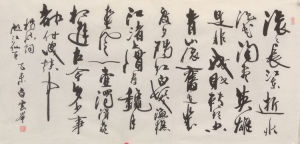 滚滚長江東逝水
浪花淘盡英雄
是非成敗轉頭空
青山依舊在幾
度夕陽紅白髮漁樵
江渚上慣看秋月
春風一壺濁酒喜
相逢古今多少事
都付笑談中
楊慎詞
臨江仙